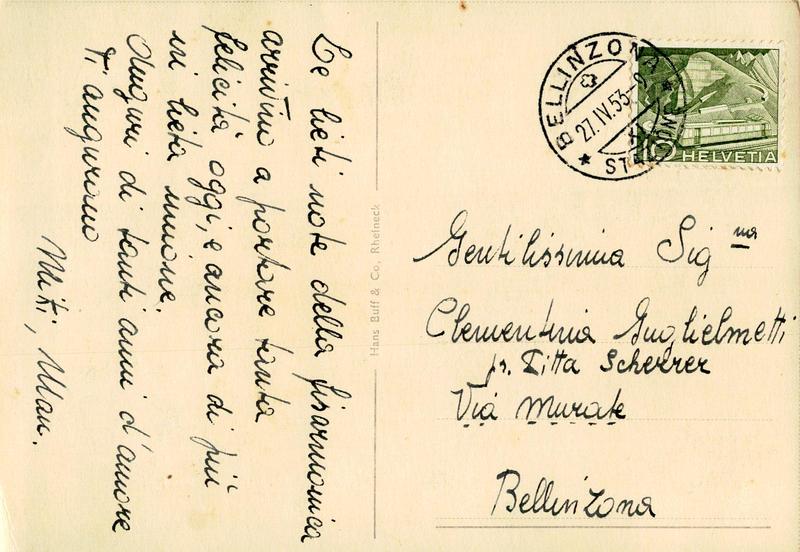 Le lieti note della fisarmonica
arrivino a portare tanta
felicità oggi, e ancora di più
in lieta unione.
Auguri di tanti anni d'amore
Ti auguriamo
Miti, Mau.
Hans Buff & Co, Rheineck
BELLINZONA
27.IV.53
HELVETIA
Gentilissima Sigma
Clementina Guglielmetti
pr. Titta Scherrer
Via Murate
Bellinzona